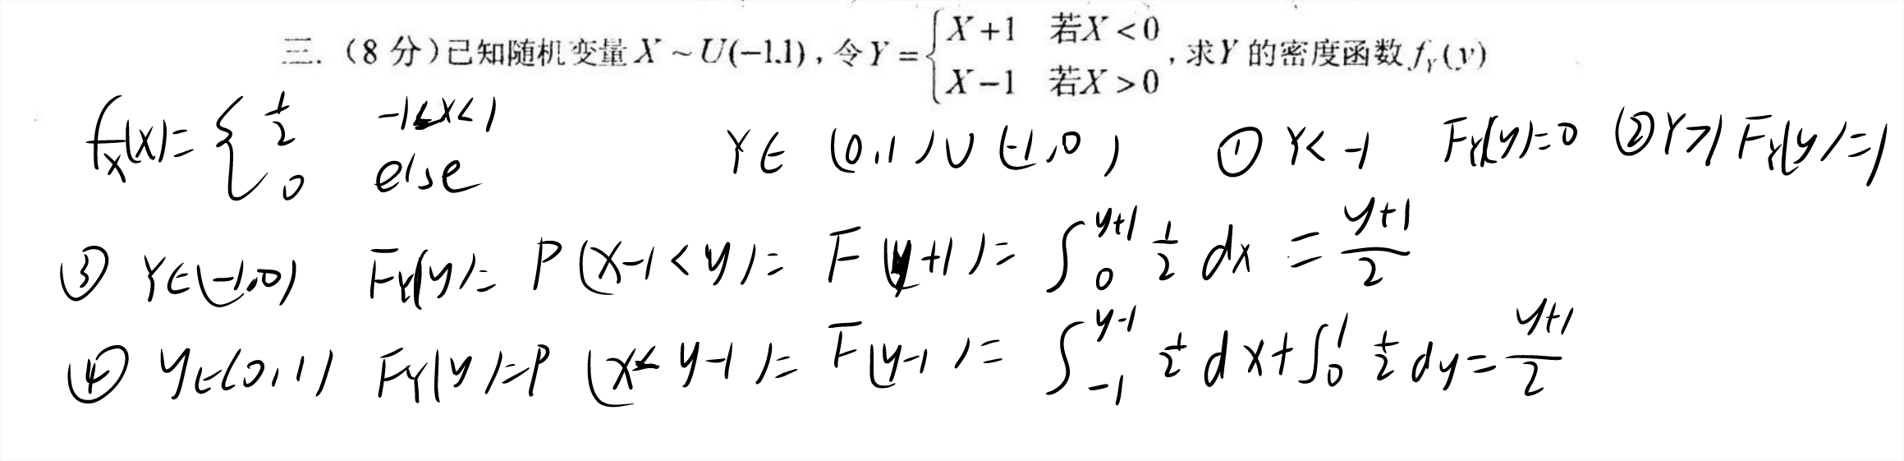 三.（8 分）已知随机变量 X ~ U(-1.1)，令 Y = { X+1 若X < 0 X-1 若X > 0 ，求Y 的密度函数 f_Y(y)
f_X(x)= { 1/2 -1≤x<1 0 else Y∈ (0,1)∪(-1,0) ① Y< -1 F_Y(y)=0 ②Y>1 F_Y(y)=1
③ Y∈(-1,0) F_Y(y)= P(X-1<y)= F(y+1)= ∫_0^{y+1} 1/2 dx = (y+1)/2
④ y∈(0,1) F_Y(y)=P (X≤y-1)= F(y-1)= ∫_{-1}^{y-1} 1/2 dx+∫_0^1 1/2 dy= (y+1)/2